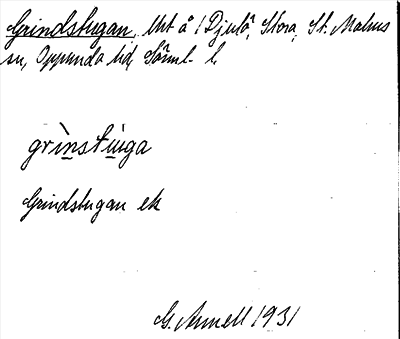 Grindstugan, lht å 1 Djulö, Stora, St. Malms
sn, Oppunda hd, Söml. l.
grìnstùga
Grindstugan ek
G. Annell 1931